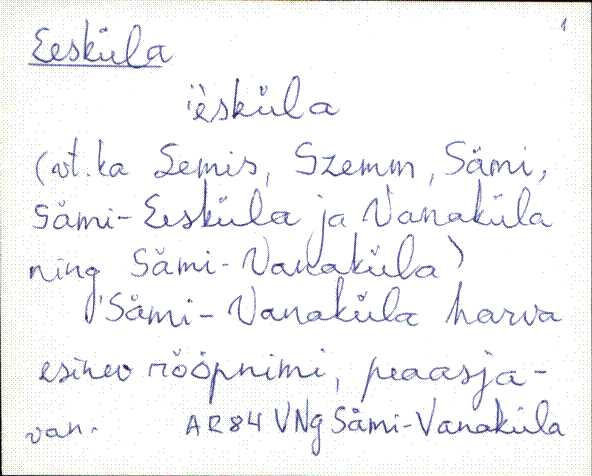 1
Eesküla
ìèsküla
(vt. ka Semis, Szemm, Sämi,
Sämi-Eesküla ja Vanaküla
ning Sämi-Vanaküla)
Sämi-Vanaküla harva
esinev rööpnimi, peaasja-
van. AR84 VNg Sämi-Vanaküla